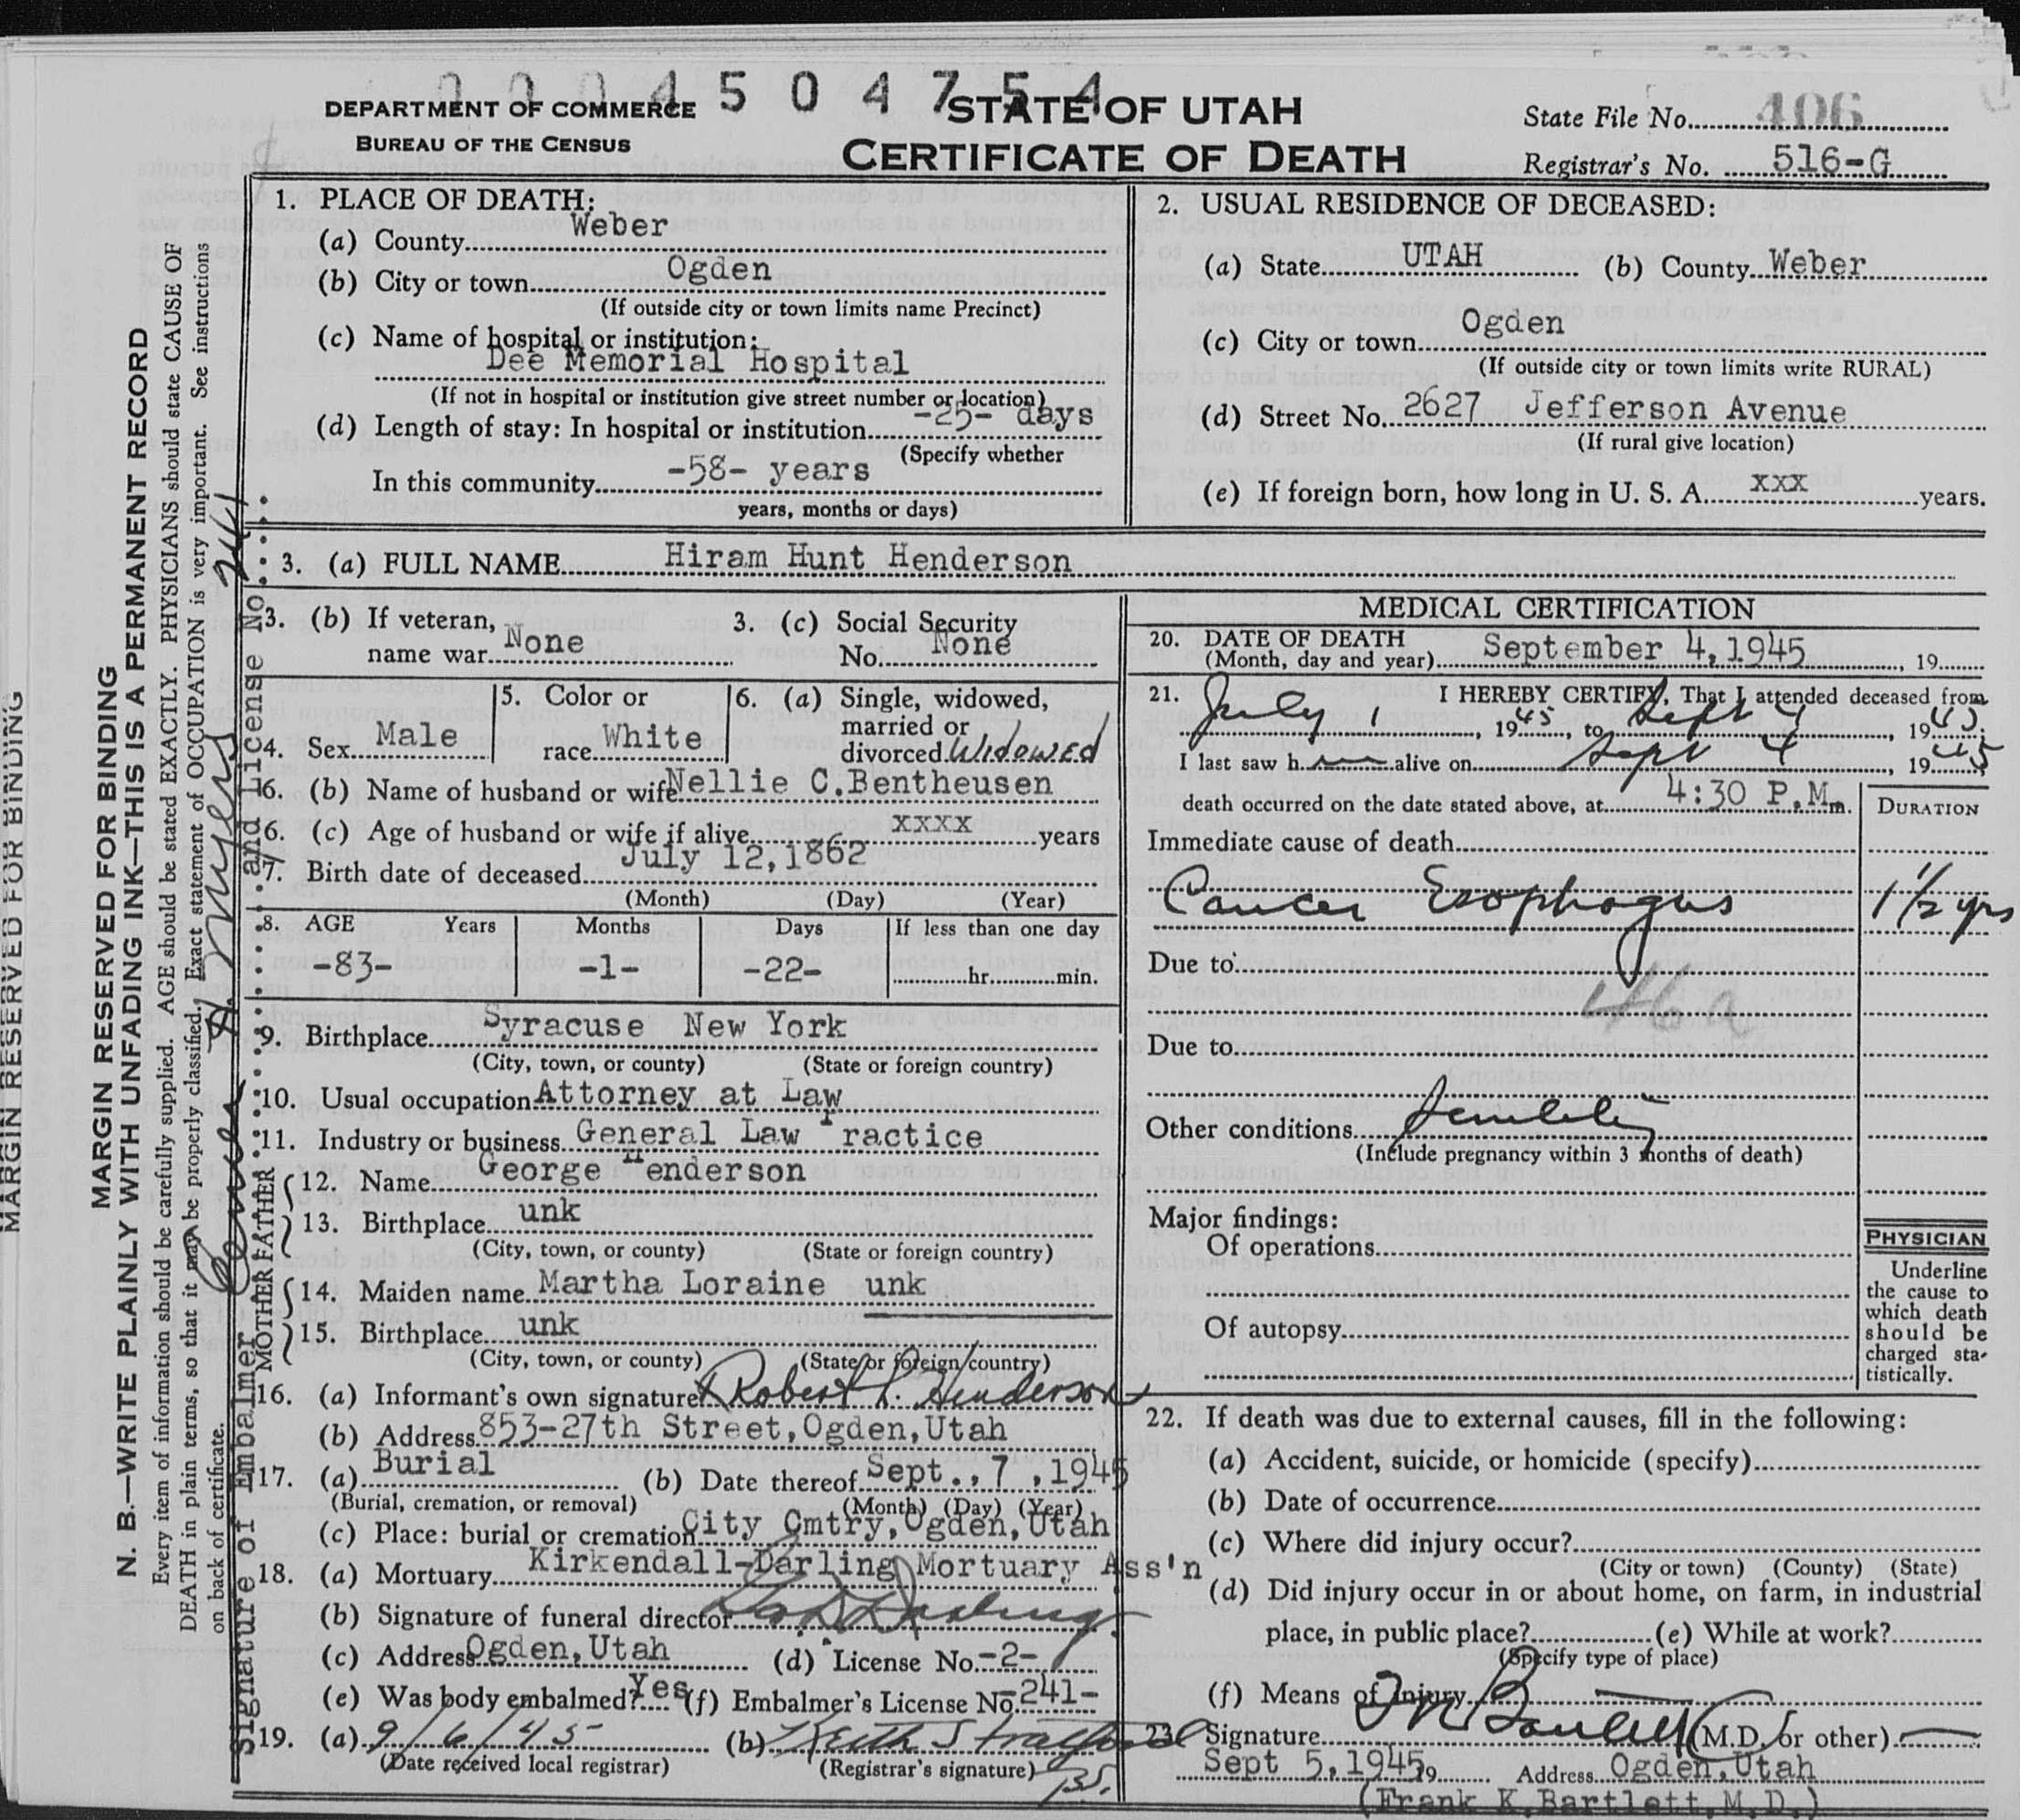 0004504754
DEPARTMENT OF COMMERCE
BUREAU OF THE CENSUS
STATE OF UTAH
CERTIFICATE OF DEATH
State File No. 406
Registrar's No. 516-G
1. PLACE OF DEATH:
(a) County Weber
(b) City or town Ogden
(If outside city or town limits name Precinct)
(c) Name of hospital or institution:
Dee Memorial Hospital
(If not in hospital or institution give street number or location)
(d) Length of stay: In hospital or institution -25- days
(Specify whether
In this community -58- years
years, months or days)
2. USUAL RESIDENCE OF DECEASED:
(a) State UTAH (b) County Weber
(c) City or town Ogden
(If outside city or town limits write RURAL)
(d) Street No. 2627 Jefferson Avenue
(If rural give location)
(e) If foreign born, how long in U. S. A. xxx years.
3. (a) FULL NAME Hiram Hunt Henderson
3. (b) If veteran, name war None
3. (c) Social Security No. None
4. Sex Male
5. Color or race White
6. (a) Single, widowed, married or divorced Widowed
6. (b) Name of husband or wife Nellie C.Bentheusen
6. (c) Age of husband or wife if alive xxxx years
7. Birth date of deceased July 12,1862
(Month) (Day) (Year)
8. AGE Years Months Days If less than one day
-83- -1- -22- hr. min.
9. Birthplace Syracuse New York
(City, town, or county) (State or foreign country)
10. Usual occupation Attorney at Law
11. Industry or business General Law Practice
FATHER
12. Name George Henderson
13. Birthplace unk
(City, town, or county) (State or foreign country)
MOTHER
14. Maiden name Martha Loraine unk
15. Birthplace unk
(City, town, or county) (State or foreign country)
16. (a) Informant's own signature x Robert L. Henderson
(b) Address 853-27th Street,Ogden,Utah
17. (a) Burial (b) Date thereof Sept.,7,1945
(Burial, cremation, or removal) (Month) (Day) (Year)
(c) Place: burial or cremation City Cmtry,Ogden,Utah
18. (a) Mortuary Kirkendall-Darling Mortuary Ass'n
(b) Signature of funeral director Darling
(c) Address Ogden,Utah (d) License No. -2-
(e) Was body embalmed? Yes (f) Embalmer's License No. 241-
19. (a) 9/6/45 (b) Keith Stratford
(Date received local registrar) (Registrar's signature)
MEDICAL CERTIFICATION
20. DATE OF DEATH
(Month, day and year) September 4,1945, 19
21. I HEREBY CERTIFY, That I attended deceased from
July 1, 1945, to Sept 4, 1945.
I last saw h alive on Sept 4, 1945
death occurred on the date stated above, at 4:30 P.Mm.
DURATION
Immediate cause of death
Cancer Esophagus 1½ yrs
Due to
46a
Due to
Other conditions Senility
(Include pregnancy within 3 months of death)
Major findings:
Of operations
Of autopsy
PHYSICIAN
Underline
the cause to
which death
should be
charged sta-
tistically.
22. If death was due to external causes, fill in the following:
(a) Accident, suicide, or homicide (specify)
(b) Date of occurrence
(c) Where did injury occur?
(City or town) (County) (State)
(d) Did injury occur in or about home, on farm, in industrial
place, in public place? (e) While at work?
(Specify type of place)
(f) Means of Injury
23. Signature F K Bartlett (M.D. or other)
Sept 5,1945, 19 Address Ogden,Utah
(Frank K.Bartlett,M.D.)
MARGIN RESERVED FOR BINDING
MARGIN RESERVED FOR BINDING
N. B.—WRITE PLAINLY WITH UNFADING INK—THIS IS A PERMANENT RECORD
Every item of information should be carefully supplied. AGE should be stated EXACTLY. PHYSICIANS should state CAUSE OF
DEATH in plain terms, so that it may be properly classified. Exact statement of OCCUPATION is very important. See instructions
on back of certificate.
Signature of Embalmer and License No. 241